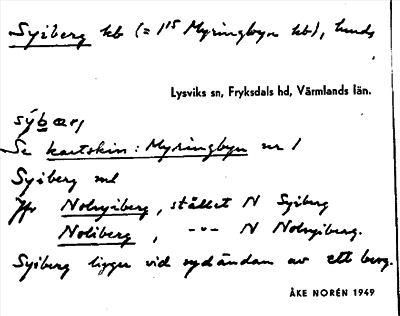 Syiberg kb (= 1¹⁵ Myringbyn kb), hmds
Lysviks sn, Fryksdals hd, Värmlands län.
sýbær,
Se kartskiss: Myringbyn nr 1
Syiberg ml
Jfr Nolsyiberg, stället N Syiberg
Noliberg, -"- N Nolsyiberg.
Syiberg ligger vid sydändan av ett berg.
ÅKE NORÉN 1949